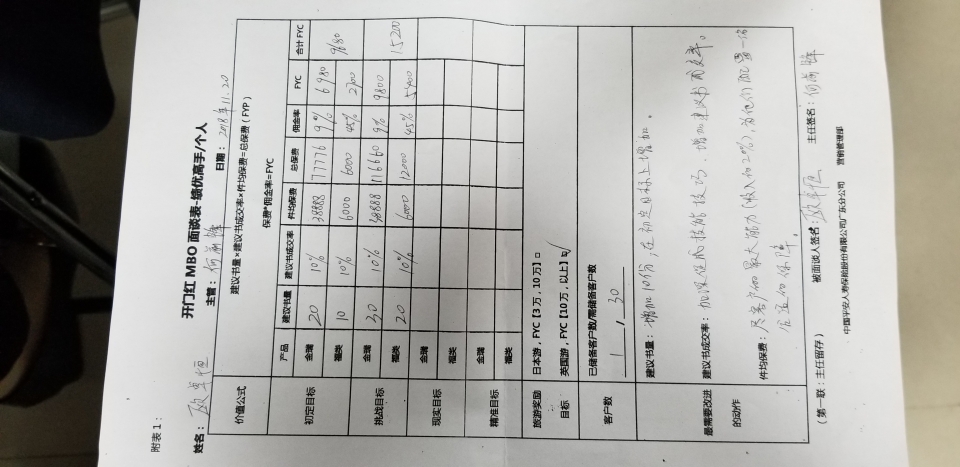 附表1：
开门红 MBO 面谈表-绩优高手/个人
姓名： 主管： 日期：2018年11.20
价值公式 建议书量×建议书成交率×件均保费=总保费（FYP）
保费*佣金率=FYC
产品 建议书量 建议书成交率 件均保费 总保费 佣金率 FYC 合计 FYC
初定目标 金瑞 20 10% 38888 77776 9% 6980 9680
福类 10 10% 6000 6000 45% 2700
挑战目标 金瑞 30 10% 38888 116660 9% 9800 15200
福类 20 10% 6000 12000 45% 5400
现实目标 金瑞
福类
精准目标 金瑞
福类
旅游奖励目标 日本游，FYC【3万，10万】□
英国游，FYC【10万，以上】☑
客户数 已储备客户数/需储备客户数
1 / 30
最需要改进的动作 建议书量：增加10份，在初定目标上增加。
建议书成交率：加强促成技能技巧，增加建议书成交率。
件均保费：尽客户的最大能力（收入的20%），为他们配置一份
合适的保障。
（第一联：主任留存） 被面谈人签名： 主任签名：
中国平安人寿保险股份有限公司广东分公司 营销管理部